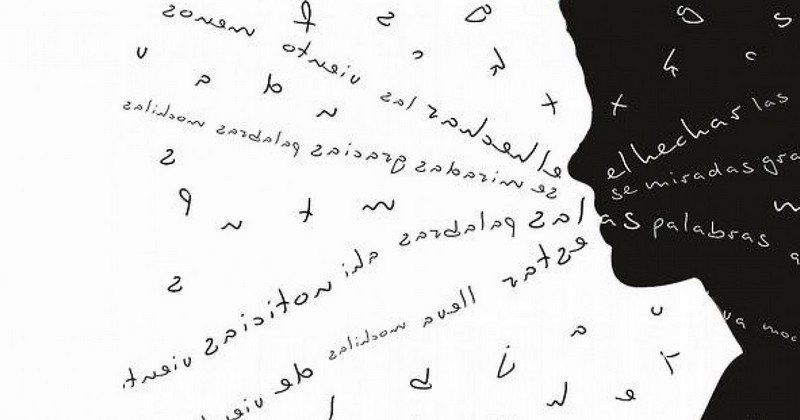 el hechar las viento menos
el hechar las
se miradas gracias palabras mochilas
se miradas gra
las palabras ahi noticias vient
as palabras
estar lleva mochilas de vien
va moc